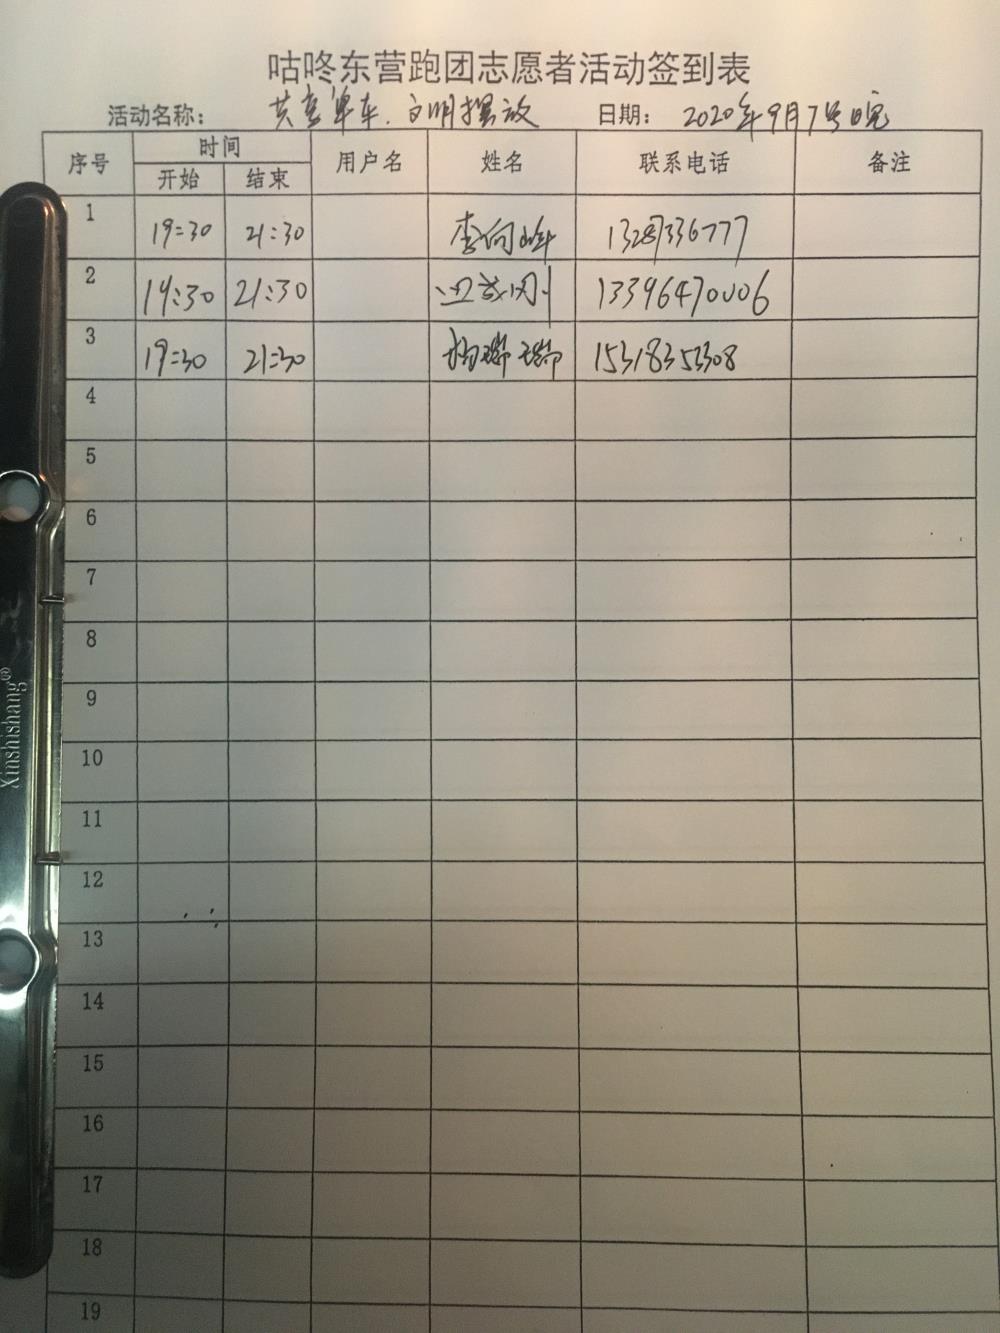 咕咚东营跑团志愿者活动签到表
活动名称: 共享单车.文明摆放 日期: 2020年9月7号晚
序号 时间 用户名 姓名 联系电话 备注
开始 结束
1 19:30 21:30 李向峰
2 19:30 21:30 13396470006
3 19:30 21:30 杨瑞瑞 15318353308
4
5
6
7
8
9
10
11
12
13
14
15
16
17
18
19
Xinshishang®